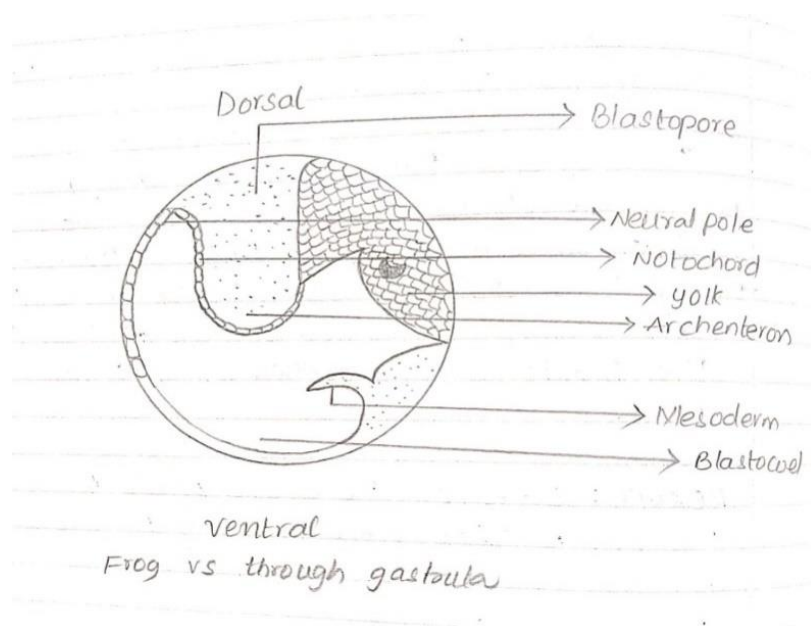 Dorsal
Blastopore
Neural pole
Notochord
yolk
Archenteron
Mesoderm
Blastocoel
ventral
Frog vs through gastrula